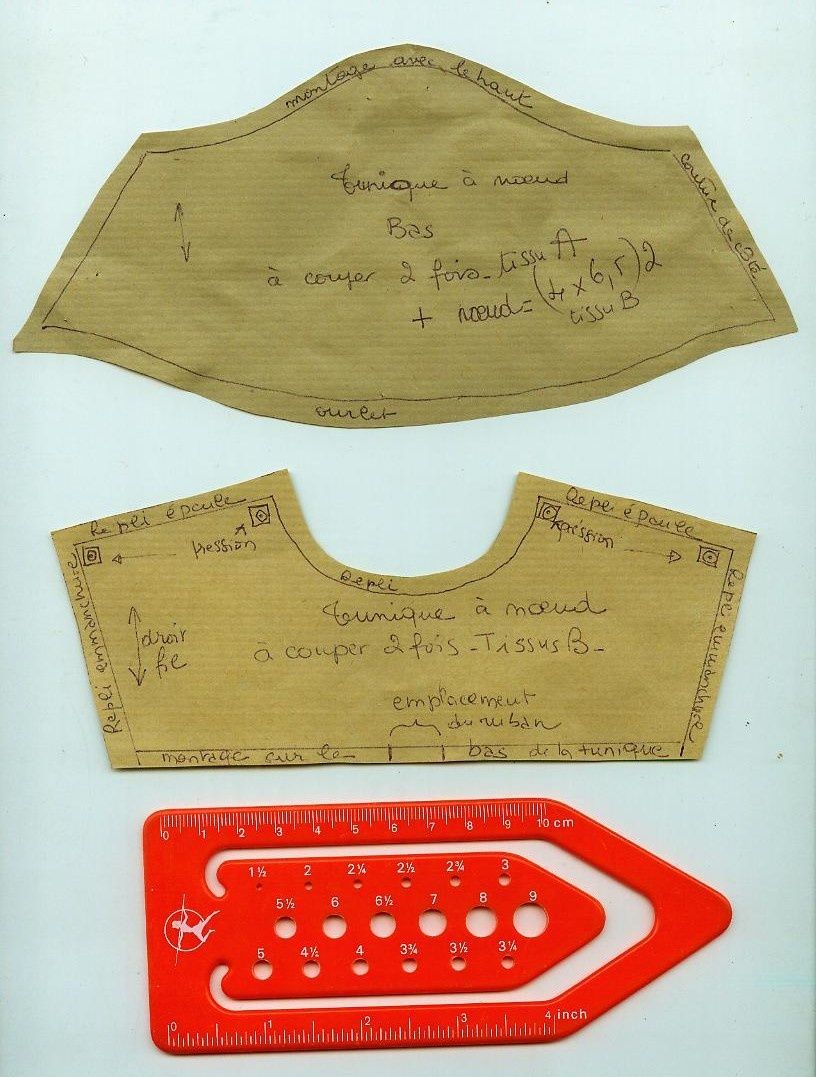 montage avec le haut
couture de côté
tunique à nœud
Bas
à couper 2 fois - tissu A
+ nœud = (4 x 6,5) 2
tissu B
ourlet
Repli épaule
Repli épaule
pression
pression
Repli emmanchure
Repli emmanchure
Repli
tunique à nœud
droit
fil
à couper 2 fois - Tissus B -
emplacement
du ruban
montage sur le bas de la tunique
0 1 2 3 4 5 6 7 8 9 10 cm
1½ 2 2¼ 2½ 2¾ 3
5½ 6 6½ 7 8 9
5 4½ 4 3¾ 3½ 3¼
0 1 2 3 4 inch